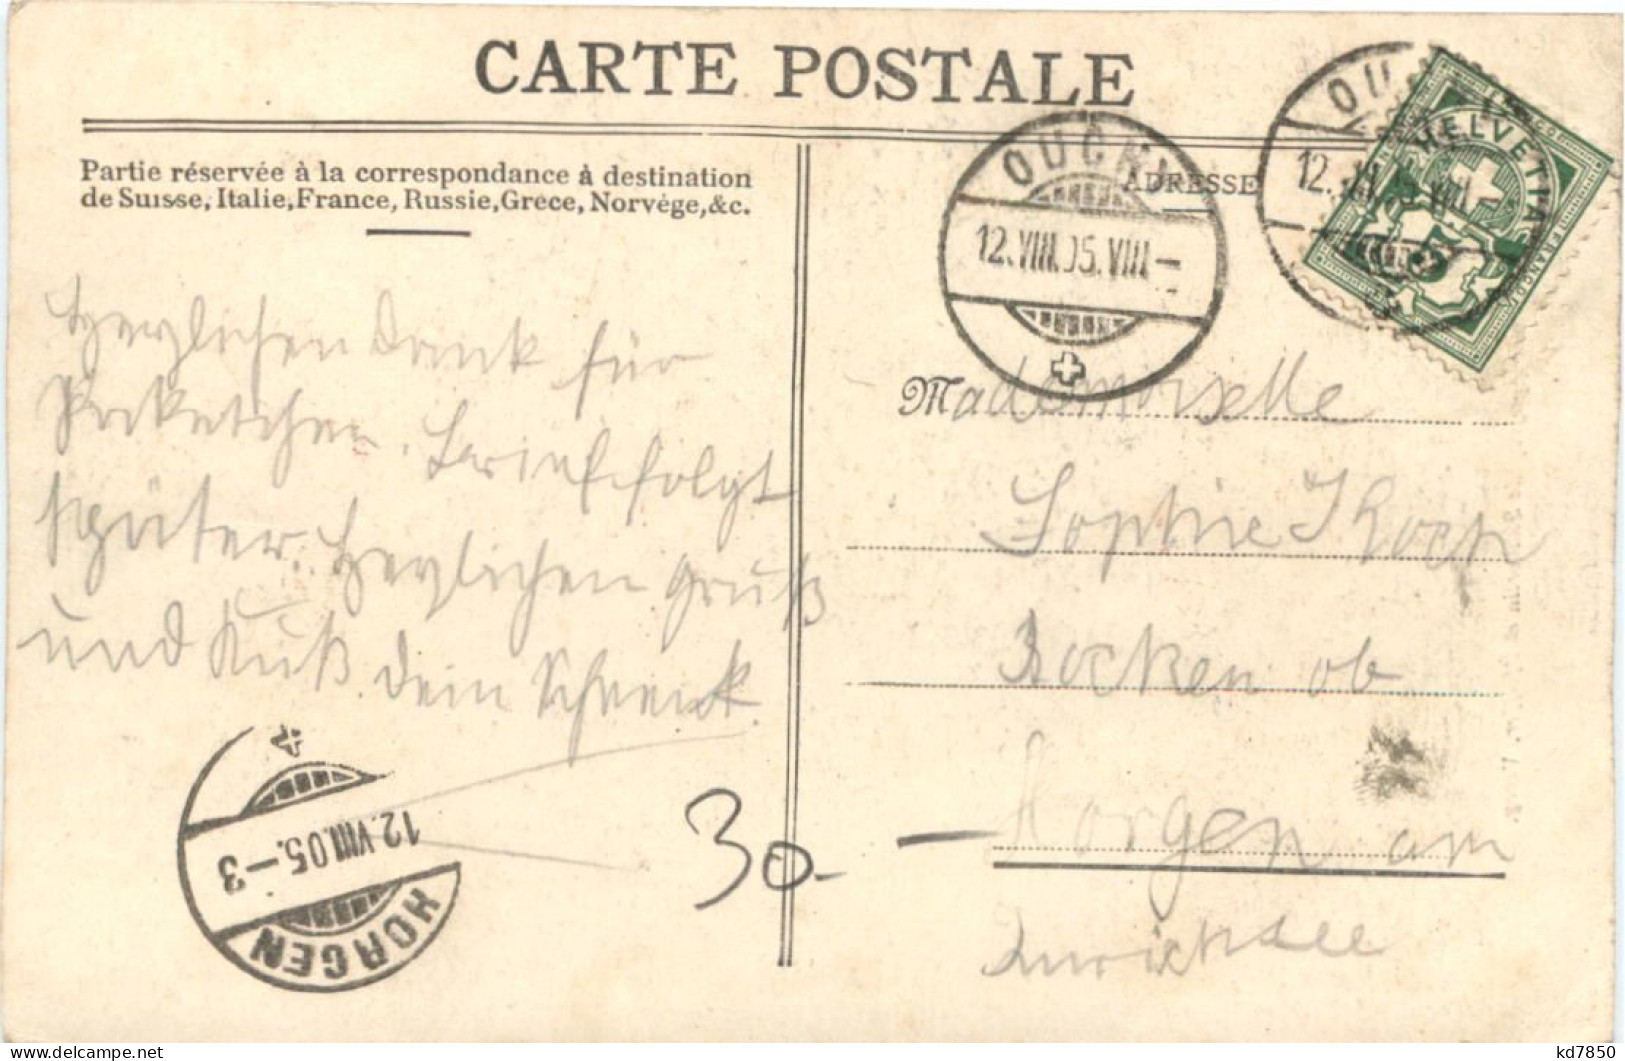 CARTE POSTALE
Partie réservée à la correspondance à destination
de Suisse, Italie, France, Russie, Grèce, Norvège, &c.
ADRESSE
OUCHY
12.VIII.05.VIII—
OU
12.VIII
VIII
HELVETIA
FRANCO
5
Herzlichen Dank für
Paketchen. Brief folgt
später. Herzlichen Gruß
und Kuß. Dein
Mademoiselle
Sophie Koch
Bocken ob
Horgen am
Zürichsee
30.-
HORGEN
12.VIII.05.—3
kd7850